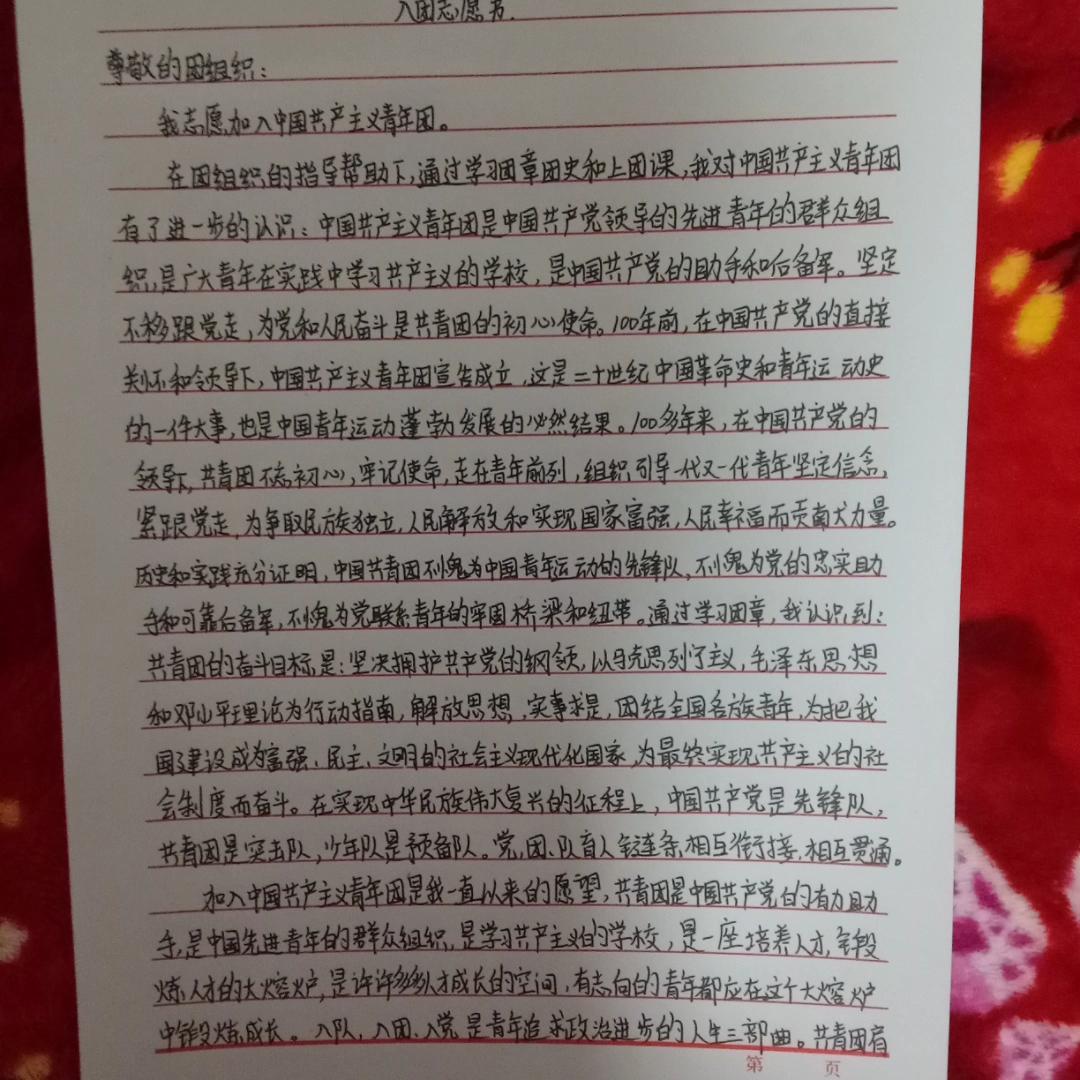 入团志愿书.
尊敬的团组织：
我志愿加入中国共产主义青年团。
在团组织的指导帮助下，通过学习团章团史和上团课，我对中国共产主义青年团
有了进一步的认识：中国共产主义青年团是中国共产党领导的先进青年的群众组
织，是广大青年在实践中学习共产主义的学校，是中国共产党的助手和后备军。坚定
不移跟党走，为党和人民奋斗是共青团的初心使命。100年前，在中国共产党的直接
关怀和领导下，中国共产主义青年团宣告成立，这是二十世纪中国革命史和青年运动史
的一件大事，也是中国青年运动蓬勃发展的必然结果。100多年来，在中国共产党的
领导下，共青团不忘初心，牢记使命，走在青年前列，组织引导一代又一代青年坚定信念，
紧跟党走，为争取民族独立，人民解放和实现国家富强，人民幸福而贡献大力量。
历史和实践充分证明，中国共青团不愧为中国青年运动的先锋队，不愧为党的忠实助
手和可靠后备军，不愧为党联系青年的牢固桥梁和纽带。通过学习团章，我认识到：
共青团的奋斗目标是：坚决拥护共产党的纲领，以马克思列宁主义，毛泽东思想
和邓小平理论为行动指南，解放思想，实事求是，团结全国各族青年，为把我
国建设成为富强、民主、文明的社会主义现代化国家，为最终实现共产主义的社
会制度而奋斗。在实现中华民族伟大复兴的征程上，中国共产党是先锋队，
共青团是突击队，少年队是预备队。党、团、队育人链条相互衔接，相互贯通。
加入中国共产主义青年团是我一直以来的愿望，共青团是中国共产党的有力助
手，是中国先进青年的群众组织，是学习共产主义的学校，是一座培养人才，锻
炼人才的大熔炉，是许许多多人才成长的空间，有志向的青年都应在这个大熔炉
中锻炼成长。入队、入团、入党是青年追求政治进步的人生三部曲。共青团肩
第 页